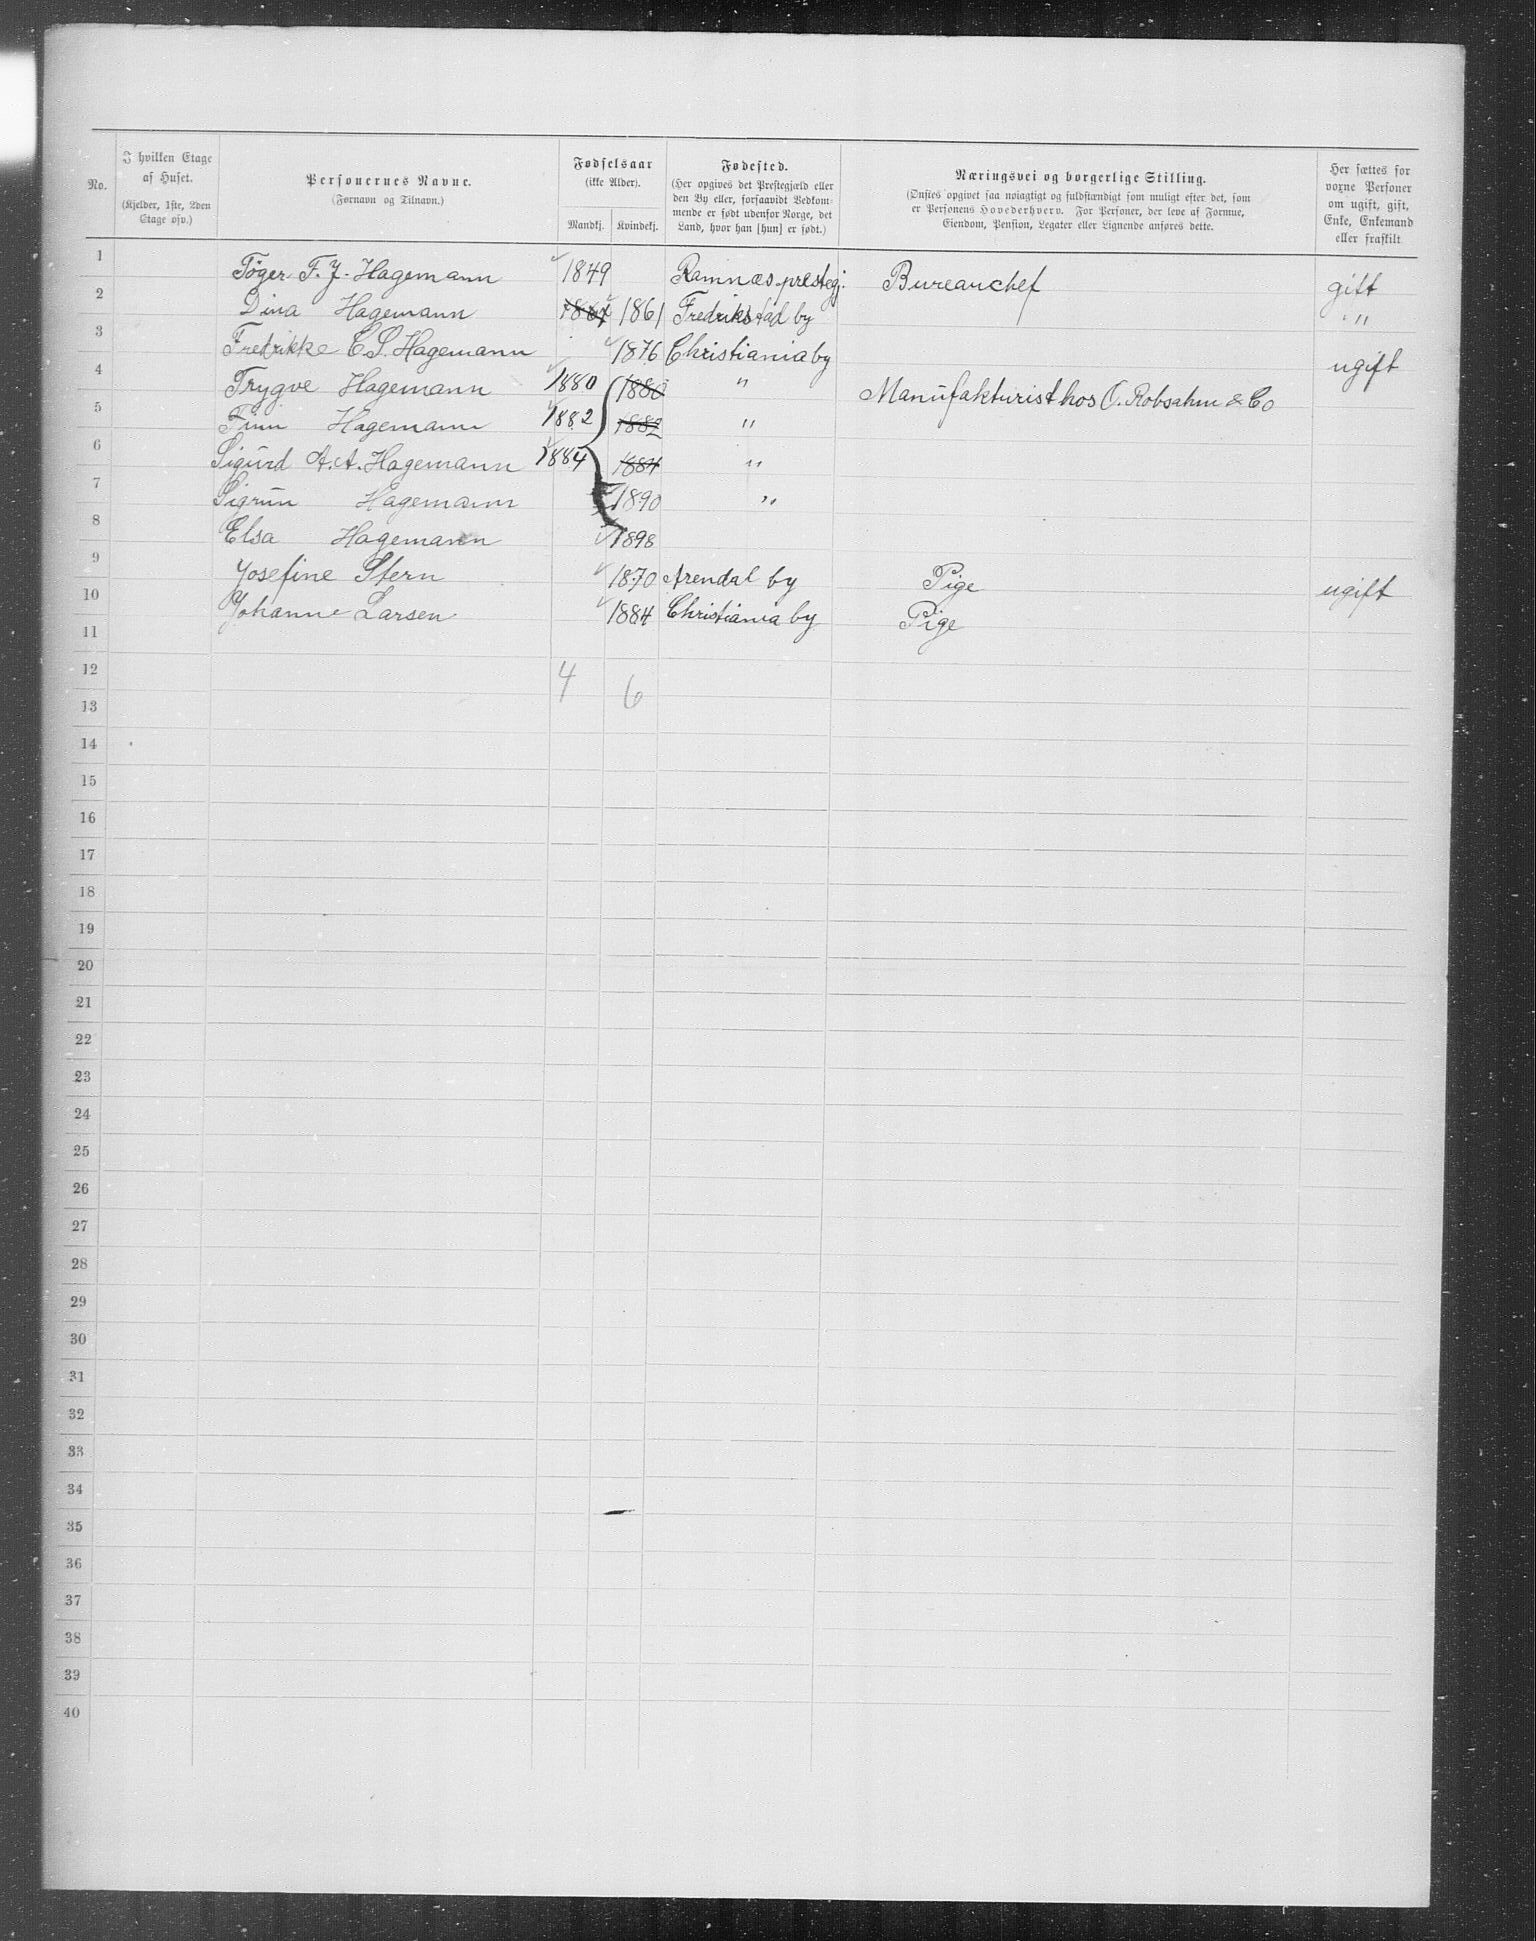 No. | I hvilken Etage af Huset. (Kjelder, 1ste, 2den Etage osv.) | Personernes Navne. (Fornavn og Tilnavn.) | Fødselsaar (ikke Alder). Mandkj. | Kvindekj. | Fødested. (Her opgives det Prestegjæld eller den By eller, forsaavidt Vedkommende er født udenfor Norge, det Land, hvor han [hun] er født.) | Næringsvei og borgerlige Stilling. (Ønskes opgivet saa nøiagtigt og fuldstændigt som muligt efter det, som er Personens Hovederhverv. For Personer, der leve af Formue, Eiendom, Pension, Legater eller Lignende anføres dette. | Her sættes for voxne Personer om ugift, gift, Enke, Enkemand eller fraskilt
1 Tøger F. J. Hagemann 1849 Ramnæs prestegj. Bureauchef gift
2 Dina Hagemann 1861 1861 Fredrikstad by "
3 Fredrikke C. S. Hagemann 1876 Christiania by ugift
4 Trygve Hagemann 1880 1880 " Manufakturist hos O. Robsahm & Co
5 Finn Hagemann 1882 1882 "
6 Sigurd A. A. Hagemann 1884 1884 "
7 Sigrun Hagemann 1890 "
8 Elsa Hagemann 1898
9 Josefine Stern 1870 Arendal by Pige ugift
10 Johanne Larsen 1884 Christiania by Pige
11
12 4 6
13
14
15
16
17
18
19
20
21
22
23
24
25
26
27
28
29
30
31
32
33
34
35
36
37
38
39
40